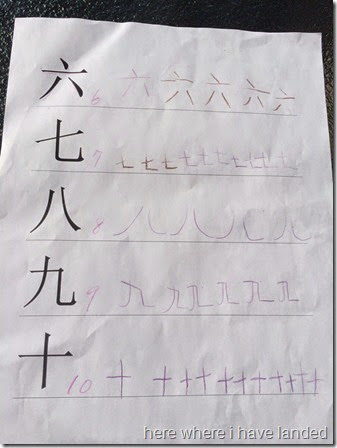 六 6 六 六 六 六 六
七 7 七 七 七 七 七 七 七 七 七
八 8 八 八
九 9 九 九 九 九 九 九
十 10 十 十 十 十 十 十 十 十 十 十
here where i have landed